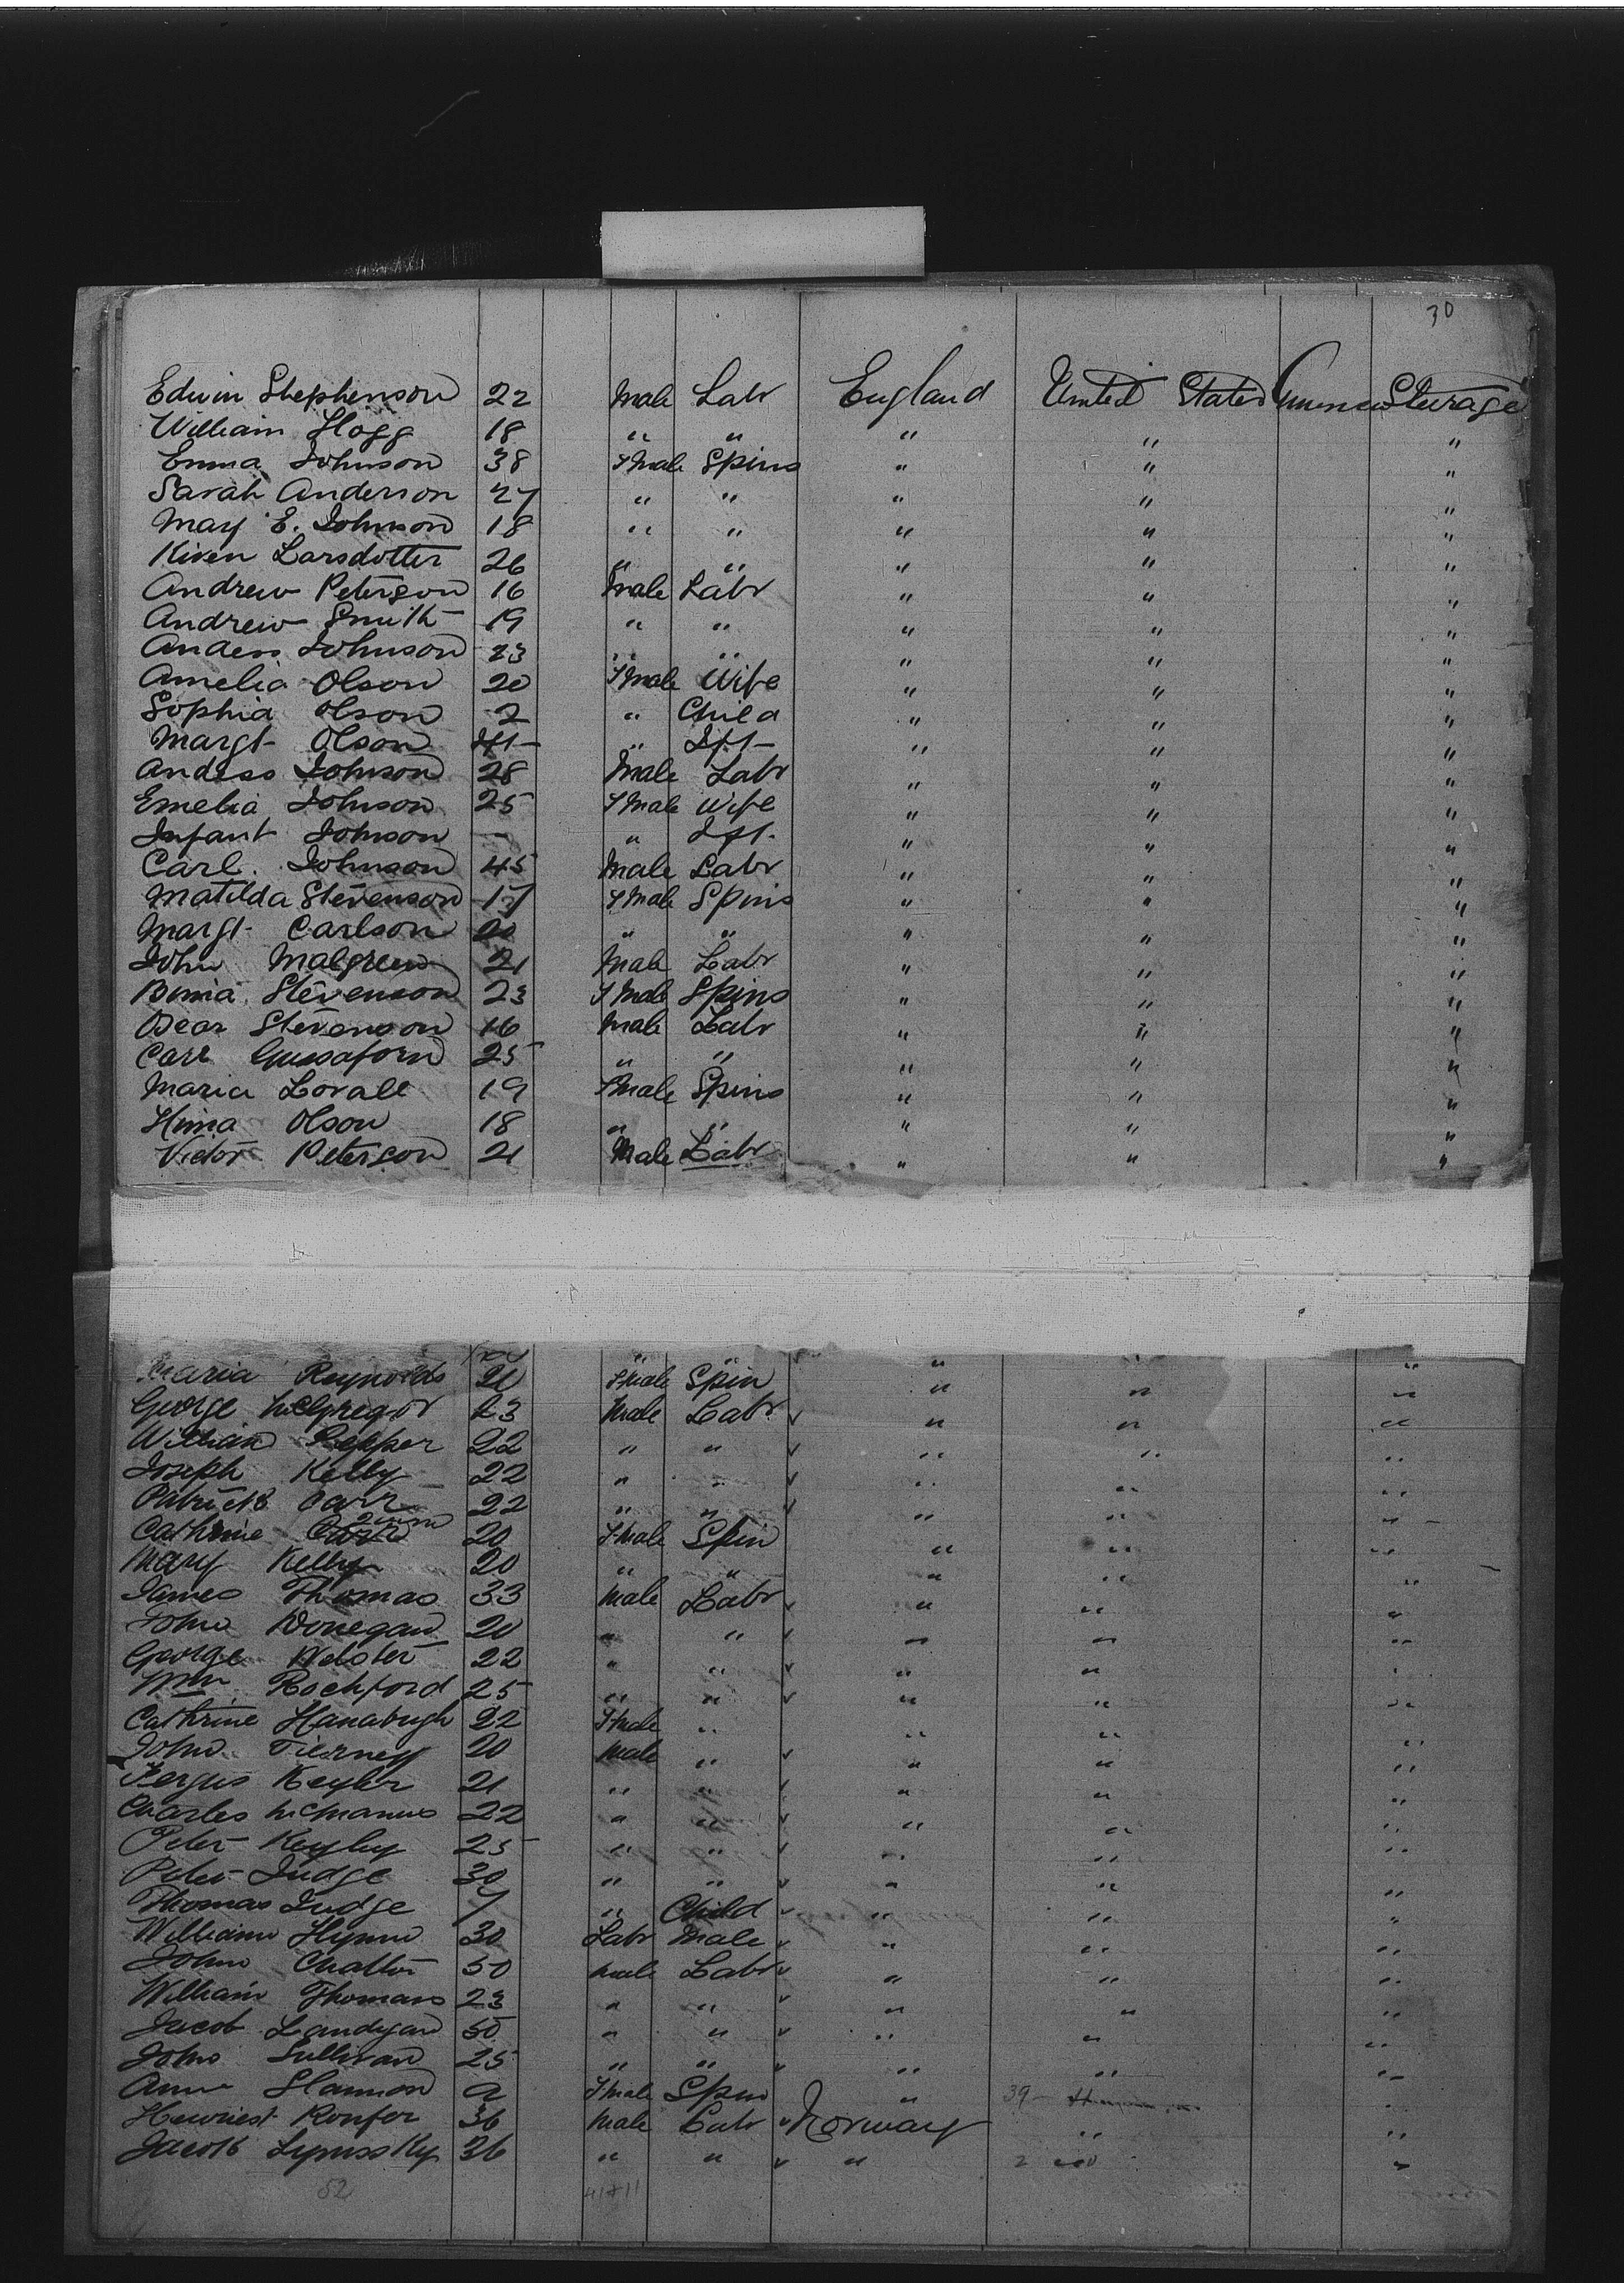 30
Edwin Stephenson 22 Male Labr England United States Steerage
William Hogg 18 " " " " "
Emma Johnson 38 Fmale Spins " " "
Sarah Anderson 27 " " " " "
Mary E. Johnson 18 " " " " "
Larsdotter 26 " " " " "
Andrew Peterson 16 Male Labr " " "
Andrew Smith 19 " " " " "
Anders Johnson 23 " " " " "
Amelia Olson 20 Fmale Wife " " "
Sophia Olson 2 " Child " " "
Margt Olson " Ift " " "
Anders Johnson 28 Male Labr " " "
Emelia Johnson 25 Fmale Wife " " "
Infant Johnson - " Ift. " " "
Carl Johnson 45 Male Labr " " "
Matilda Stevenson 17 Fmale Spins " " "
Margt Carlson 20 " " " " "
John Malgreen 21 Male Labr " " "
Stevenson 23 Fmale Spins " " "
Stevenson 16 Male Labr " " "
Carl 25 " " " " "
Maria Lovall 19 Fmale Spins " " "
Olson 18 " " " " "
Victor Peterson 21 Male Labr " " "
Maria Reynolds 20 Fmale Spin " " "
George McGregor 23 Male Labr " " "
William Pepper 22 " " " " "
Joseph Kelly 22 " " " " "
Patrick Carr 22 " " " " "
Cathrine Quinn 20 Fmale Spin " " "
Mary Kelly 20 " " " " "
James Thomas 33 Male Labr " " "
John Donegan 20 " " " " "
George Webster 22 " " " " "
Wm Rochford 25 " " " " "
Cathrine 22 Fmale " " " "
John Tierney 20 Male " " " "
Fergus 21 " " " " "
Charles McManus 22 " " " " "
Peter 25 " " " " "
Peter Judge 30 " " " " "
Thomas Judge 7 " Child " " "
William Flynn 30 Labr Male " " "
John 50 Male Labr " " "
William Thomas 23 " " " " "
Jacob 50 " " " " "
John Sullivan 25 " " " " "
Fmale Spin " 39 "
36 Male Labr Norway " "
Jacob 36 " " " 2 "
52 41+11